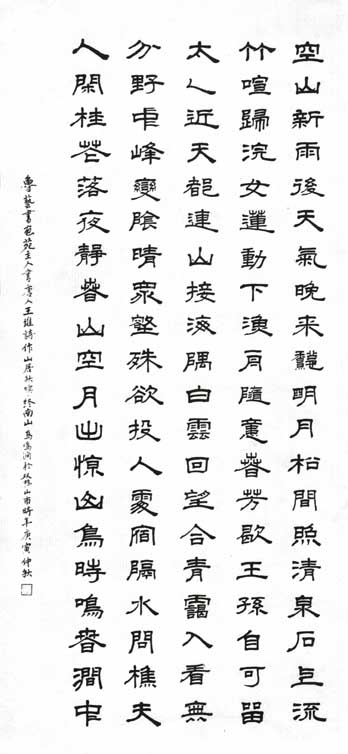 空山新雨後天氣晚来龝明月松間照清泉石上流
竹喧歸浣女蓮動下漁舟隨意春芳歇王孫自可留
太乙近天都連山接海隅白雲回望合青靄入看無
分野中峰變陰晴衆壑殊欲投人處宿隔水問樵夫
人閑桂花落夜靜春山空月出惊山鳥時鳴春澗中
魯藝書苑主人書唐人王維詩作山居秋暝終南山鳥鳴澗於山市時年庚寅仲秋